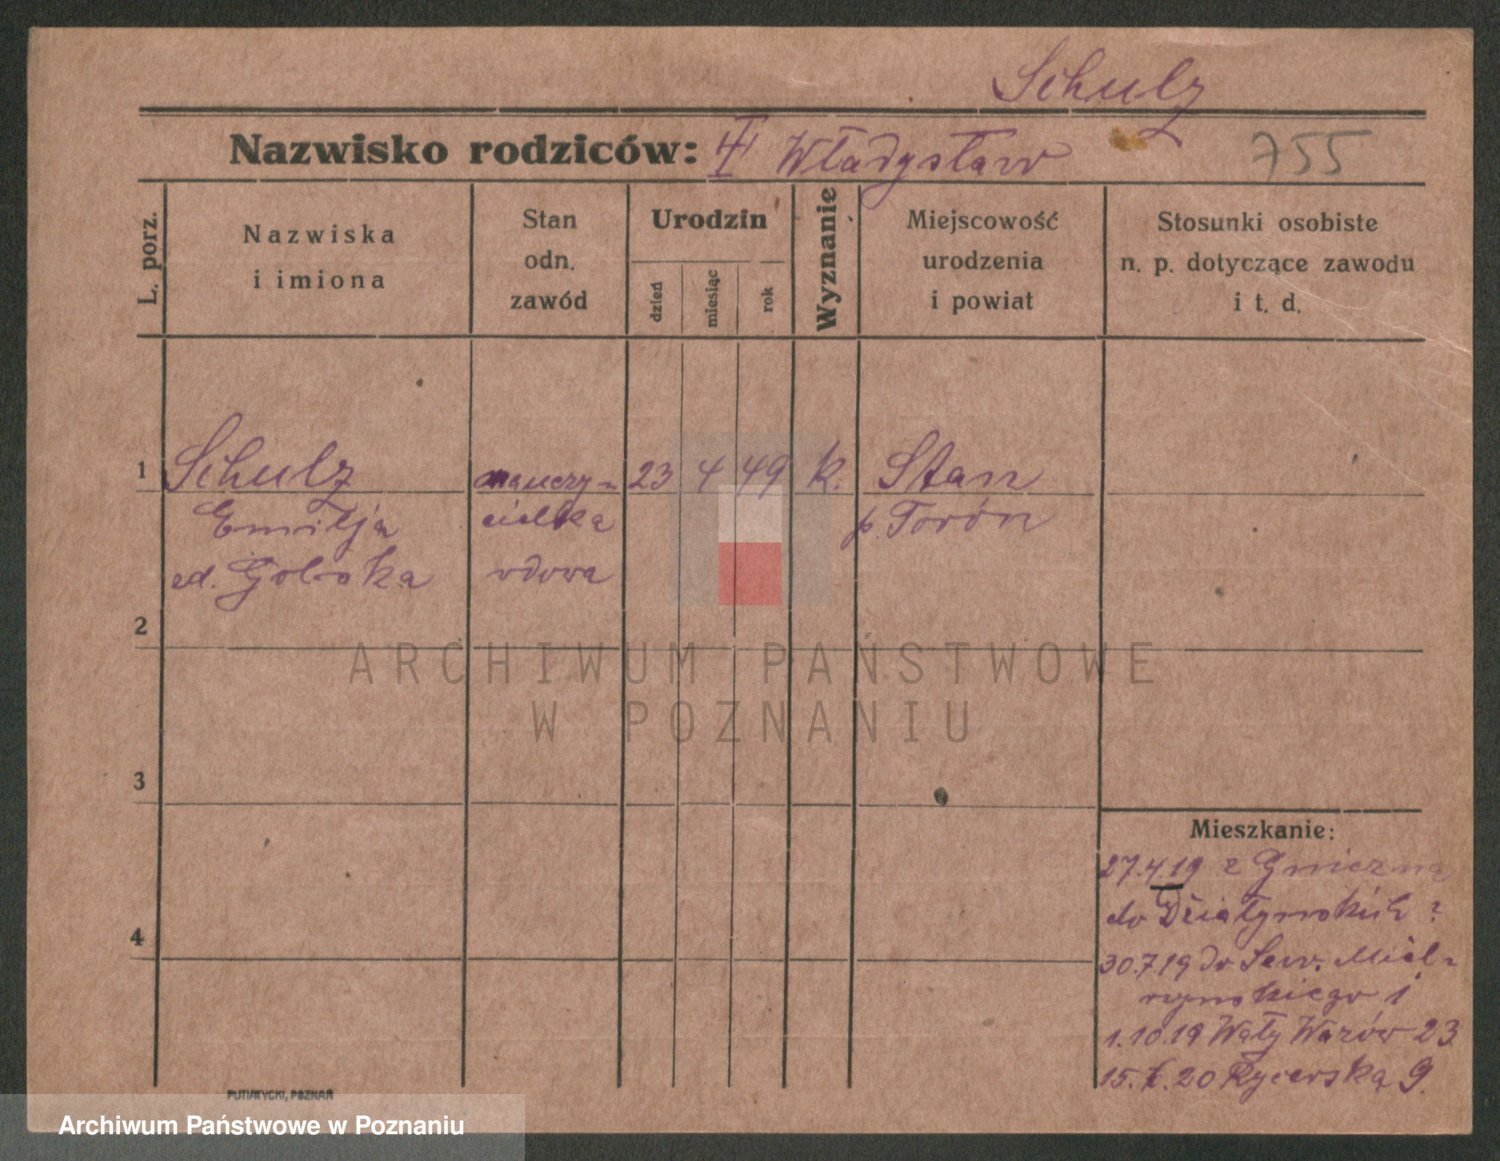 Schulz
Nazwisko rodziców: Władysław
755
L. porz.
Nazwiska
i imiona
Stan
odn.
zawód
Urodzin
dzień
miesiąc
rok
Wyznanie
Miejscowość
urodzenia
i powiat
Stosunki osobiste
n. p. dotyczące zawodu
i t. d.
1
Schulz
Emilja
nauczy-
cielka
wdowa
23 4 49 k.
Stan
p. Toroń
2
3
4
Mieszkanie:
27.4.19 z Gniezna
do Działyńskich
30.7.19 do Sew. Miel-
żyńskiego 1
1.10.19 Wały Wazów 23
20 Rycerska 9.
PUTIATYCKI, POZNAŃ
ARCHIWUM PAŃSTWOWE
W POZNANIU
Archiwum Państwowe w Poznaniu